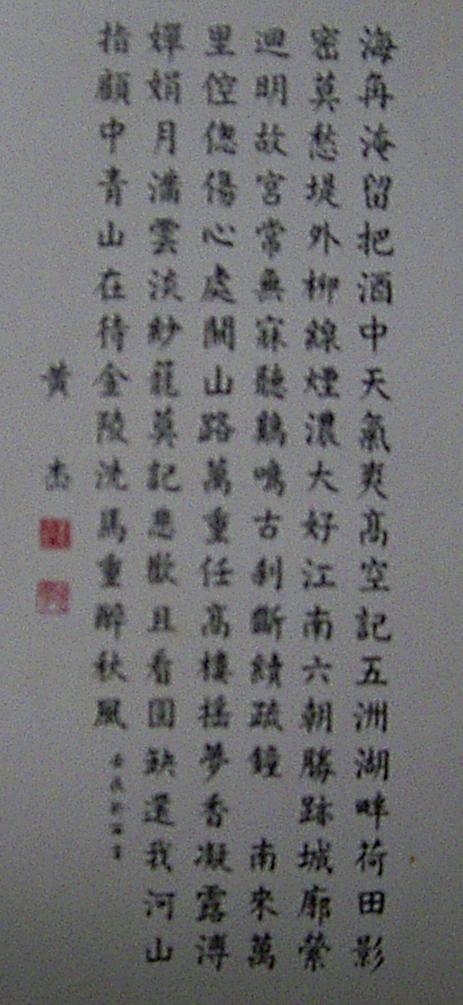 海角淹留把酒中天氣爽高空記五洲湖畔荷田影
密莫愁堤外柳線煙濃大好江南六朝勝跡城廓縈
迴明故宮常無寐聽鷄鳴古刹斷續疏鐘 南來萬
里倥傯傷心處關山路萬重任高樓搖夢香凝露漙
嬋娟月滿雲淡紗籠莫記悲歡且看圓缺還我河山
指顧中青山在待金陵洗馬重醉秋風
黃杰